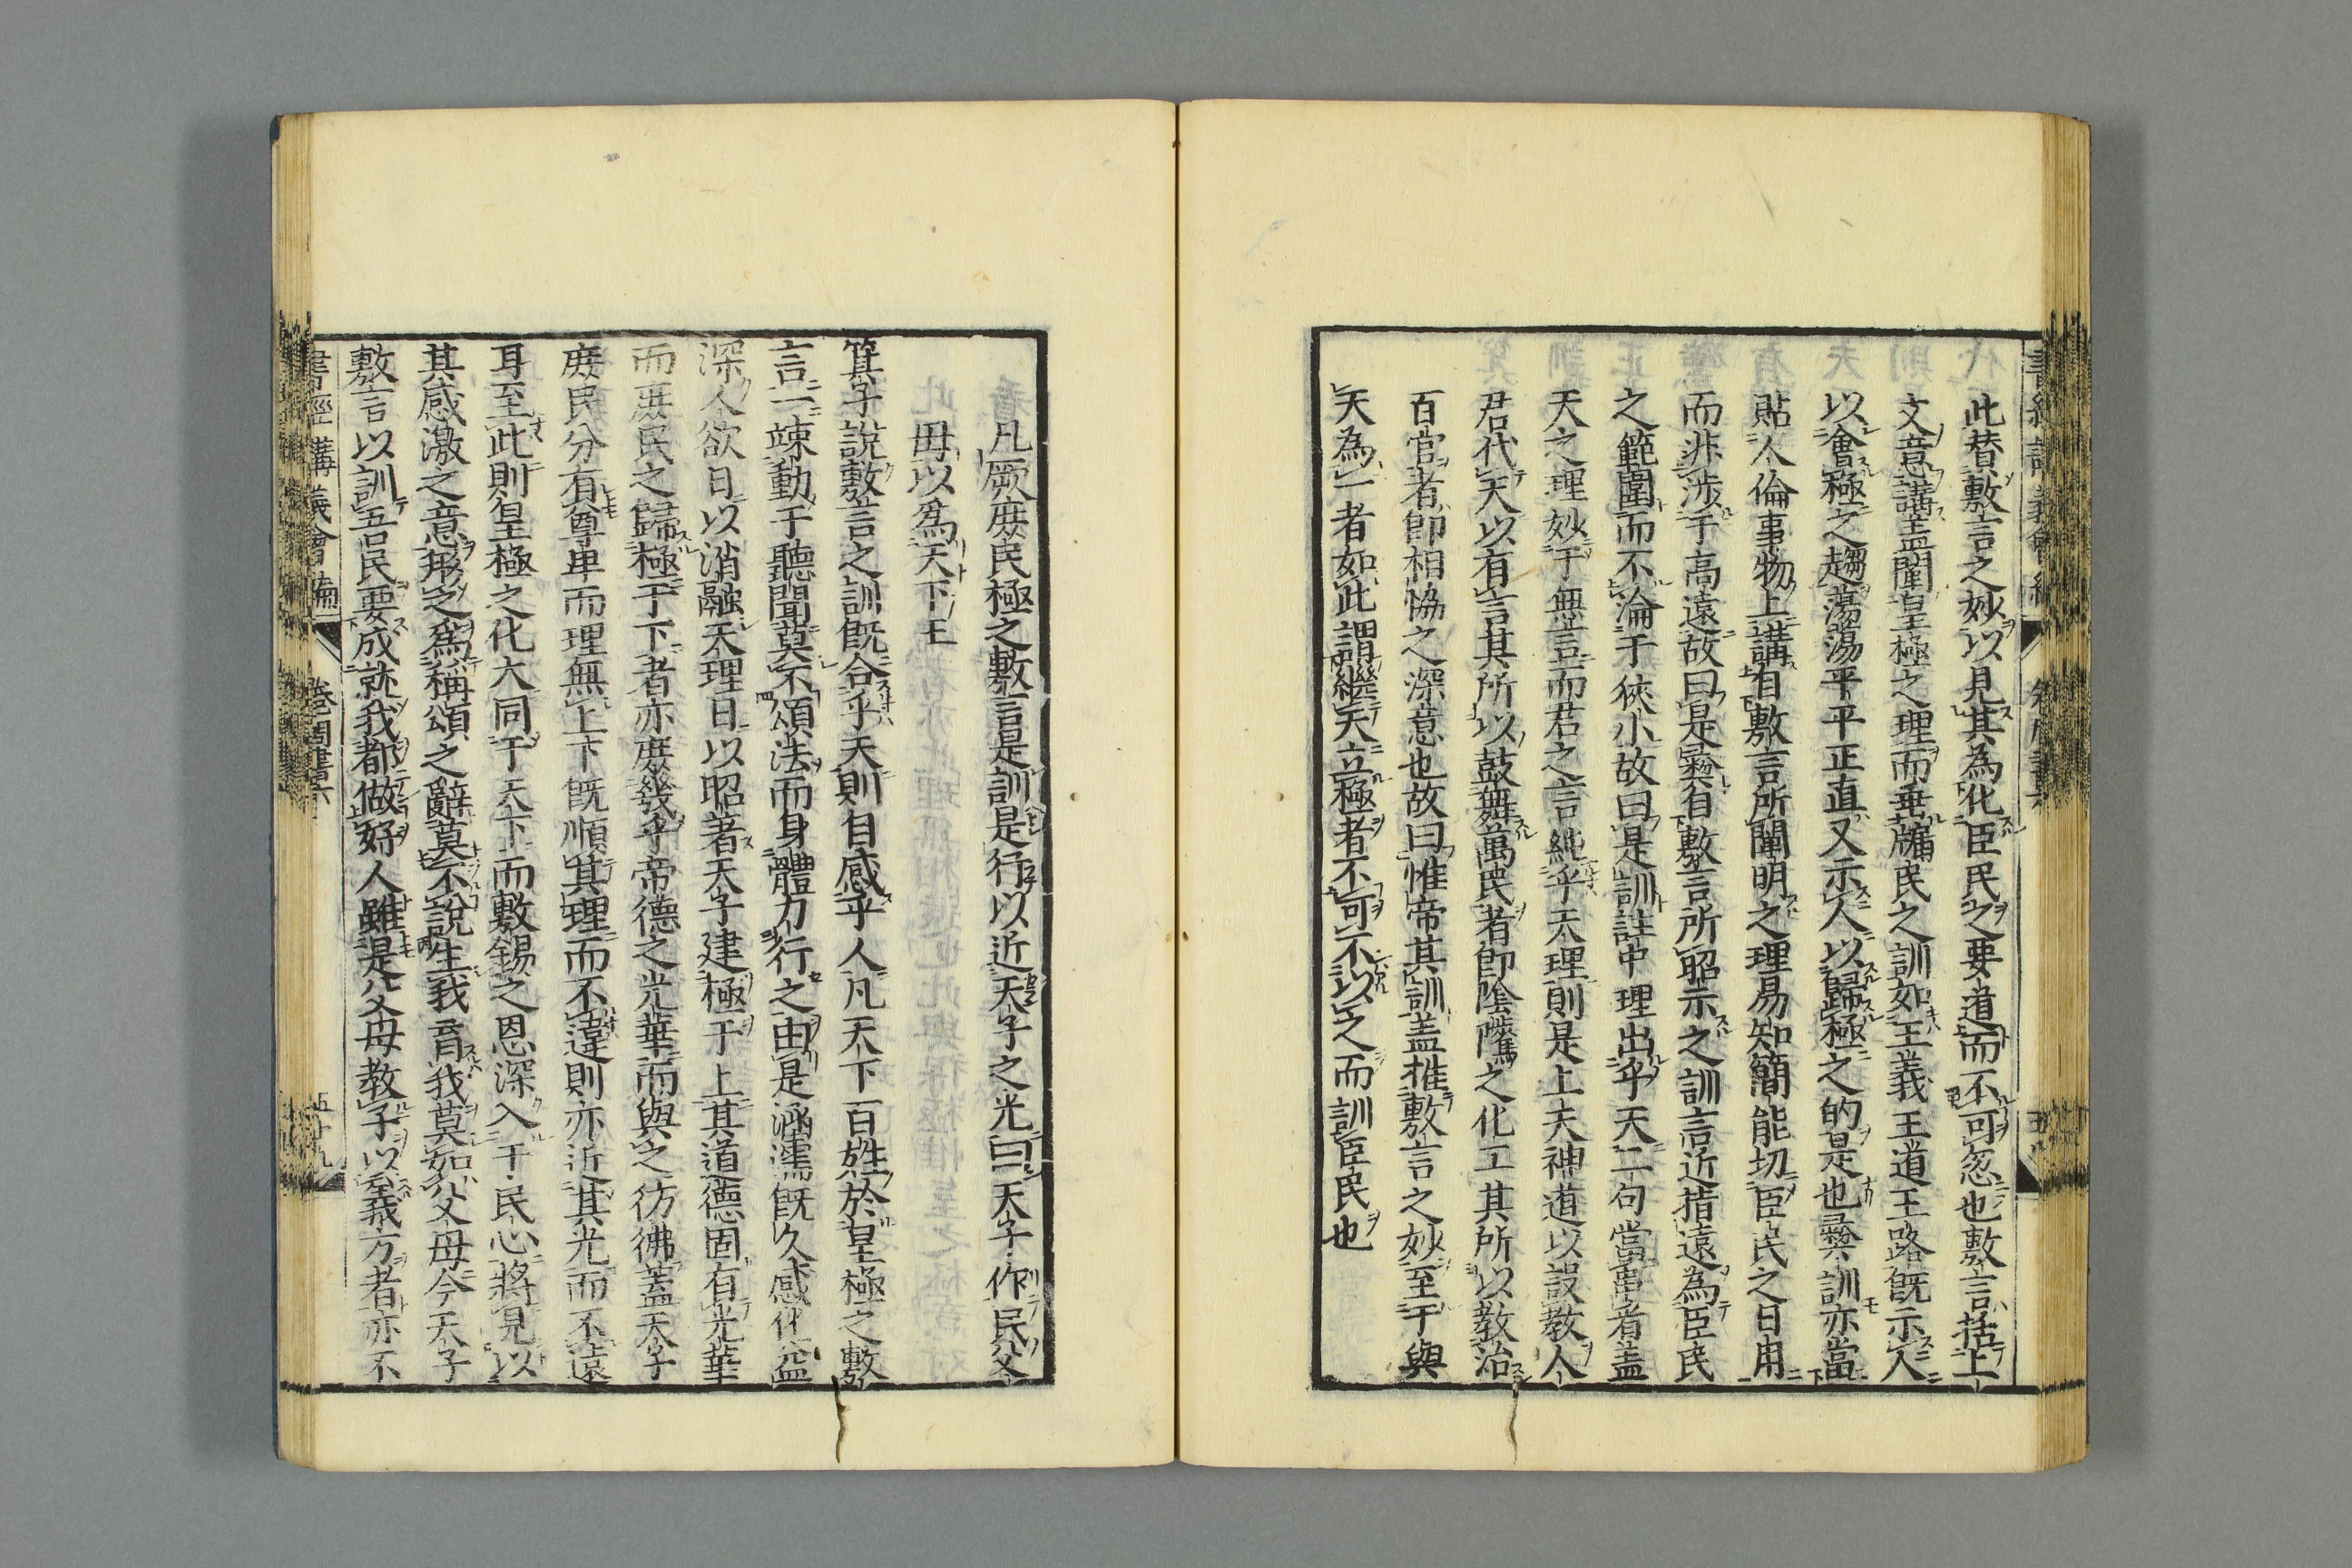 此替敷言之妙以見其為化臣民之要道而不可忽也敷言括上
文意講盖闡皇極之理而垂牖民之訓如王義王道王路既示人
以會極之趨蕩蕩平平正直又示人以歸極之的是也彛訓亦當
貼人倫事物上講自敷言所闡明之理易知簡能切臣民之日用
而非渉于高遠故曰是彛自敷言所昭示之訓言近指遠為臣民
之範圍而不淪于狹小故曰是訓註中理出乎天二句當串看盖
天之理妙于無言而君之言純乎天理則是上天神道以設教人
君代天以有言其所以鼓舞萬民者卽陰隲之化工其所以教治
百官者卽相恊之深意也故曰惟帝其訓盖推敷言之妙至于與
天為一者如此謂繼天立極者不可不以之而訓臣民也
凡厥庶民極之敷言是訓是行以近天子之光曰天子作民父
母以為天下王
箕子說敷言之訓既合乎天則自感乎人凡天下百姓於皇極之敷
言一竦動于聽聞莫不頌法而身體力行之由是涵濡既久感化益
深人欲日以消融天理日以昭著天子建極于上其道德固有光華
而庶民之歸極于下者亦庶幾乎帝德之光華而與之彷彿蓋天子
庶民分有尊卑而理無上下既順其理而不違則亦近其光而不遠
耳至此則皇極之化大同于天下而敷錫之恩深入于民心將見以
其感激之意形之為稱頌之辭莫不說生我育我莫如父母今天子
敷言以訓吾民要成就我都做好人雖是父母教子以義方者亦不
書經講義會編 卷周書六 五十九